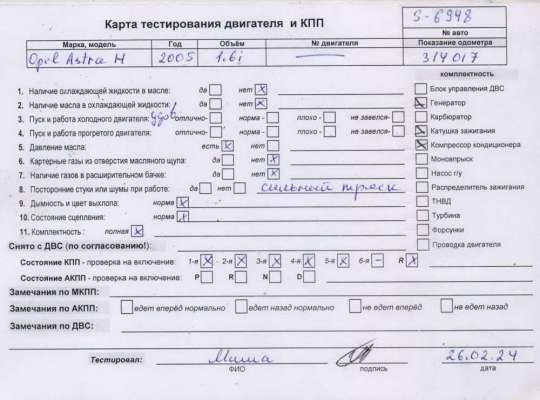 Карта тестирования двигателя и КПП
S-6948
№ авто
Марка, модель Год Объём № двигателя Показание одометра
Opel Astra H 2005 1.6i 314017
комплектность
1. Наличие охлаждающей жидкости в масле: да нет X
2. Наличие масла в охлаждающей жидкости: да нет X
3. Пуск и работа холодного двигателя: удов отлично- норма - плохо - не завелся-
4. Пуск и работа прогретого двигателя: отлично- норма - плохо - не завелся-
5. Давление масла: есть X нет
6. Картерные газы из отверстия масляного щупа: да нет X
7. Наличие газов в расширительном бачке: да нет X
8. Посторонние стуки или шумы при работе: да нет сильный треск
9. Дымность и цвет выхлопа: норма X
10. Состояние сцепления: норма X
11. Комплектность : полная X
Блок управления ДВС
Генератор
Карбюратор
Катушка зажигания
Компрессор кондиционера
Моновпрыск
Насос г/у
Распределитель зажигания
ТНВД
Турбина
Форсунки
Проводка двигателя
Снято с ДВС (по согласованию!):
Состояние КПП - проверка на включение: 1-я X 2-я X 3-я X 4-я X 5-я X 6-я – R X
Состояние АКПП - проверка на включение: P R N D
Замечания по МКПП:
Замечания по АКПП: едет вперёд нормально едет назад нормально не едет вперёд не едет назад
Замечания по ДВС:
Тестировал: Миша 26.02.24
ФИО подпись дата